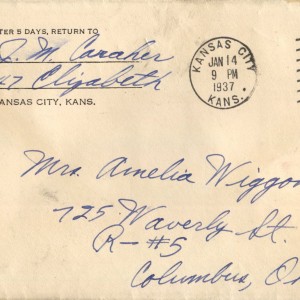 TER 5 DAYS, RETURN TO
J. M. Caraher
47 Elizabeth
ANSAS CITY, KANS.
KANSAS CITY
JAN 14
9 PM
1937
KANS.
Mrs. Amelia Wiggo
725 Waverly St.
R-#5
Columbus, O